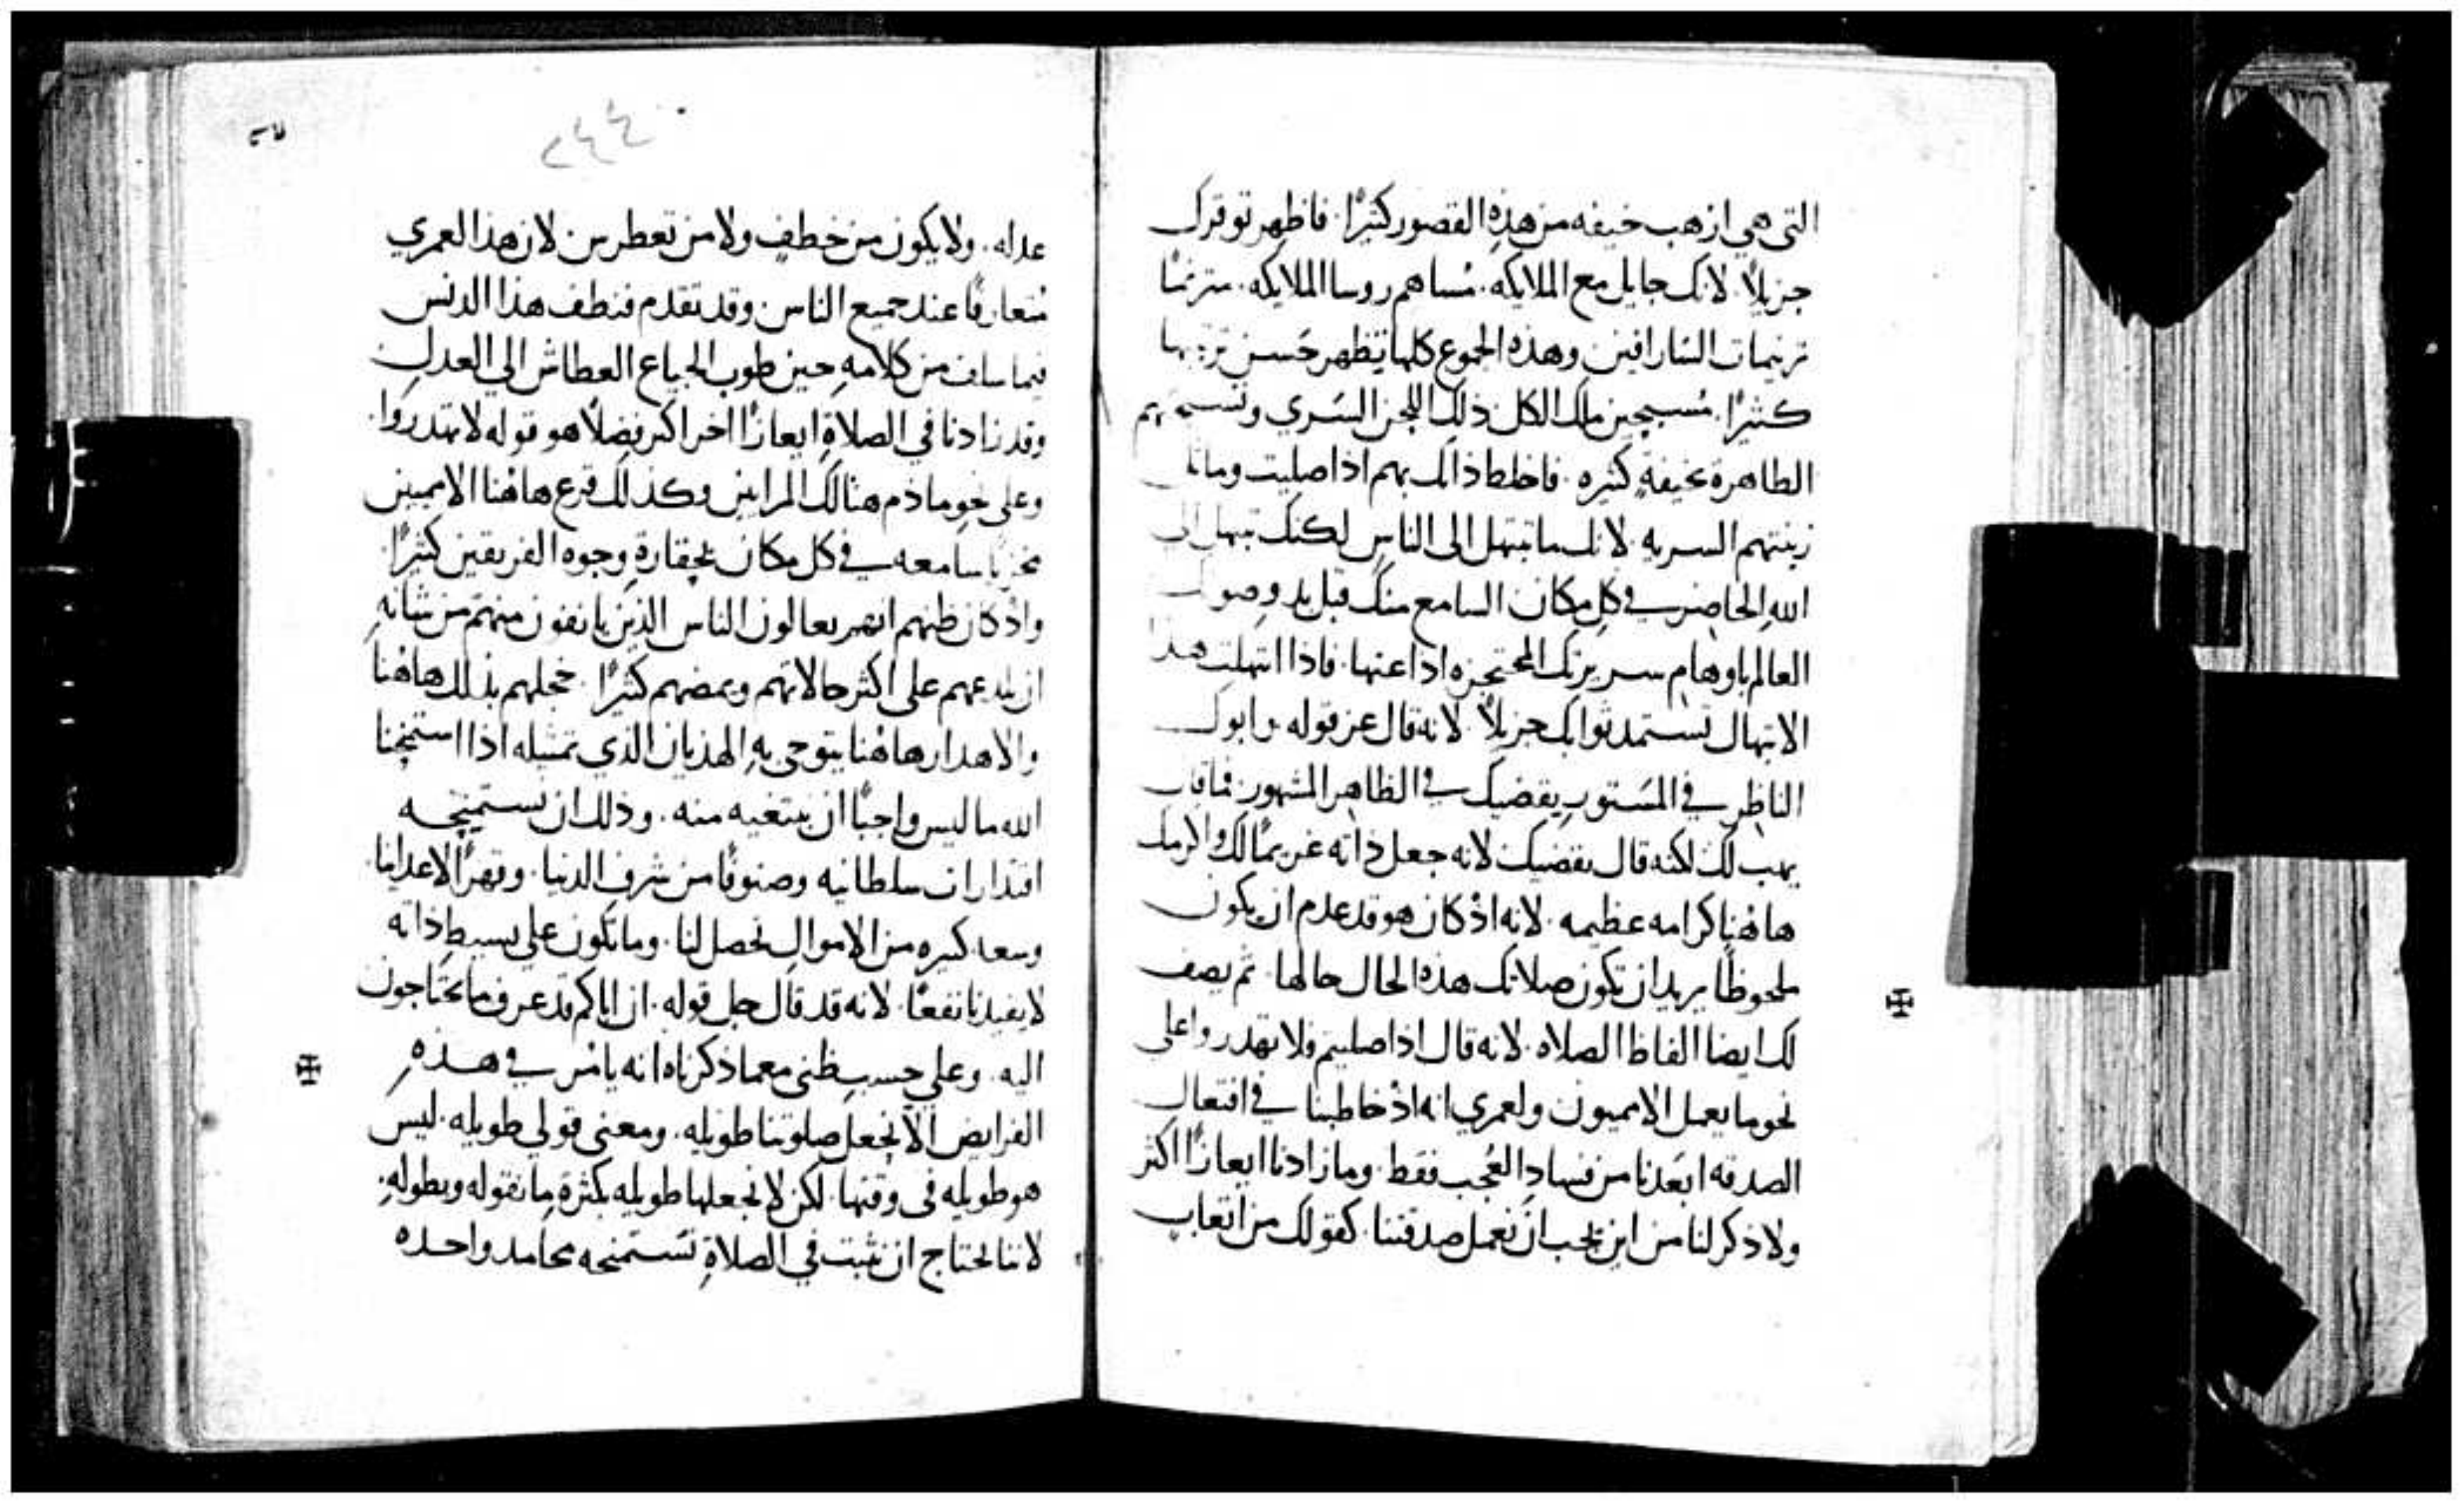 التى هي ارهب خيفه من هذه القصور كثيرًا. فاظهر توقرك
جزيلاً. لانك جايل مع الملايكه. مُساهم روسا الملايكه. مترنمًا
ترنيمات السَارافين وهذه الجموع كلها تظهر حَسن ترتيبها
كثيرًا. مُسبحين ملك الكل ذلك اللحن السَري
الطاهرة بخيفةٍ كثيره. فاخلط ذاتك بهم اذا صليت وماثل
زينتهم السريه. لانك ما تبتهل الى الناس لكنك تبتهل الى
الله الحاضر في كل مكان السامع منك قبل بدو صوتك
العالم باوهام سريرتك المحتجزه اذاعتها. فاذا ابتهلت هذا
الابتهال تستمد ثوابك جزيلاً. لانه قال عز قوله وابوك
الناظر في المسَتور يقضيك في الظاهر المشهور. فما قال
يهب لك لكنه قال يقضيك لانه جعل ذاته غريمًا لك واكرمك
هاهُنا كرامه عظيمه. لانه اذْ كان هو قد عدم ان يكون
ملحوظًا يريد ان تكون صلاتك هذه الحال حالها. ثم يصف
لك ايضا الفاظ الصلاه. لانه قال اذا صليتم فلا تهدروا على
نحو ما يعمل الامميون ولعمري انه اذْ خاطبنا في افتعال
الصدقه ابعَدنا من فساد العُجب فقط. وما زادنا ايعازًا اكثر
ولا ذكر لنا من اين يجب ان نعمل صدقتنا. كقولك من اتعاب
٢٤٤
عدله. ولا يكون من خطفٍ ولا من تعطرس لان هذا لعمري
مُتعارفًا عند جميع الناس وقد تقدم فنظف هذا الدنس
فيما سلف من كلامهِ حين طوب الجياع العطاش الى العدل
وقد زادنا في الصلاةِ ايعازًا اخر اكثر فضلاً هو قوله لا تهدروا.
وعلى نحو ما ذم هنالك المرايين وكذلك قرع هاهُنا الامميين
سامعه في كل مكان بحقارةِ وجوه الفريقين كثيرًا.
واذْ كان ظنهم انهم يعالون الناس الذين يانفون منهم من شانهِ
ان يلدعهم على اكثر حالاتهم ويمضهم كثيرًا. خجلهم بذلك هاهُنا
والاهدار هاهُنا يتوخى بهِ الهذيان الذي تمثيله اذا استمنحنا
الله ما ليس واجبًا ان نبتغيه منه. وذلك ان نستميحه
اقتدارات سلطانيه وصنوفًا من شرف الدنيا. وقهرًا لاعداينا
وسعه كثيره من الاموال تحصل لنا. وما تكون على بسيط ذاته
لا يفيدنا نفعًا. لانه قد قال جل قوله. ان اباكم قد عرف ما تحتاجون
اليه. وعلى حسب ظني مع ما ذكرناه انه يامُر في هذهِ
الفرايض الاّ نجعل صلوتنا طويله. ومعنى قولي طويله. ليس
هو طويله في وقتها. لكن لا نجعلها طويله بكثرة ما نقوله وبطولهِ.
لاننا نحتاج ان نثبت في الصلاةِ نسَتمنحه محامد واحده